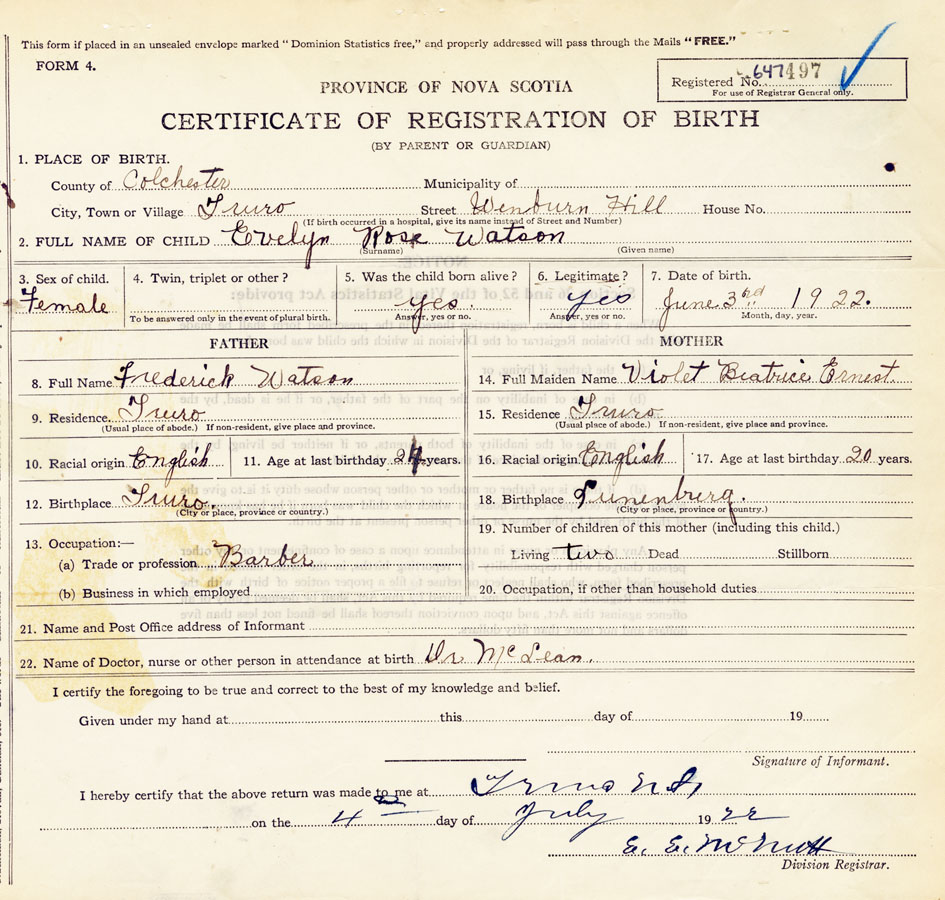 This form if placed in an unsealed envelope marked "Dominion Statistics free," and properly addressed will pass through the Mails "FREE."
FORM 4.
Registered No. 647497
For use of Registrar General only.
PROVINCE OF NOVA SCOTIA
CERTIFICATE OF REGISTRATION OF BIRTH
(BY PARENT OR GUARDIAN)
1. PLACE OF BIRTH.
County of Colchester Municipality of
City, Town or Village Truro Street Wenburn Hill House No.
(If birth occurred in a hospital, give its name instead of Street and Number)
2. FULL NAME OF CHILD Evelyn Rose Watson
(Surname) (Given name)
3. Sex of child. 4. Twin, triplet or other? 5. Was the child born alive? 6. Legitimate? 7. Date of birth.
Female yes. yes June 3rd 1922.
To be answered only in the event of plural birth. Answer, yes or no. Answer, yes or no. Month, day, year.
FATHER MOTHER
8. Full Name Frederick Watson 14. Full Maiden Name Violet Beatrice Ernest
9. Residence. Truro 15. Residence Truro
(Usual place of abode.) If non-resident, give place and province. (Usual place of abode.) If non-resident, give place and province.
10. Racial origin English 11. Age at last birthday 24 years. 16. Racial origin English 17. Age at last birthday 20 years.
12. Birthplace Truro. 18. Birthplace Lunenburg.
(City or place, province or country.) (City or place, province or country.)
13. Occupation:— 19. Number of children of this mother (including this child.)
(a) Trade or profession Barber Living two Dead Stillborn
(b) Business in which employed 20. Occupation, if other than household duties
21. Name and Post Office address of Informant
22. Name of Doctor, nurse or other person in attendance at birth Dr McLean.
I certify the foregoing to be true and correct to the best of my knowledge and belief.
Given under my hand at this day of 19
Signature of Informant.
I hereby certify that the above return was made to me at Truro N.S.
on the 4th day of July 1922
E. E. McNutt
Division Registrar.